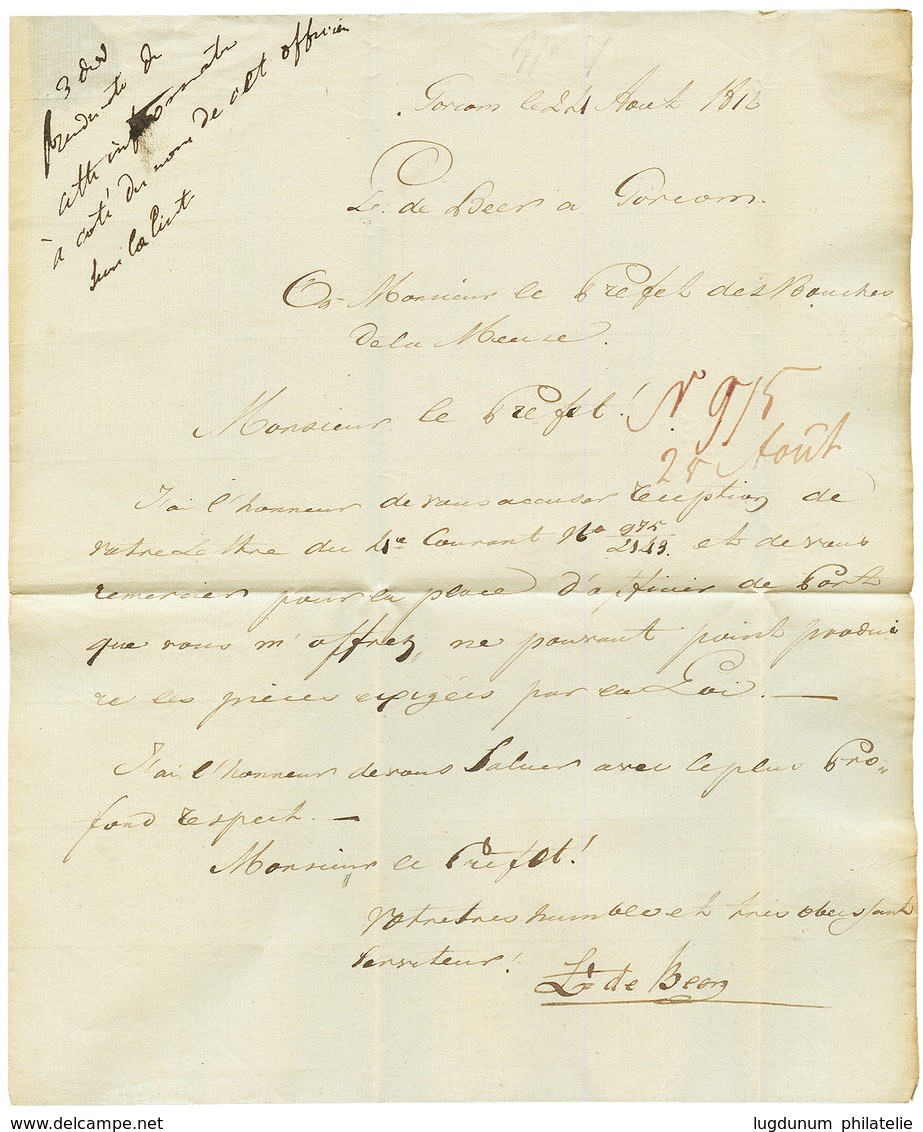 3 div
prendre note de
cette information
à coté du nom de cet officier
sur la list
Gorcom le 24 Aout 1812
L. de Beer a Gorcom.
A Monsieur le Préfet des Bouches
de la Meuse.
Monsieur le Prefet!
N° 975
25 Août
J'ai l'honneur de vous accuser reception de
votre Lettre du 4e Courant No 975/2143. et de vous
remercier pour la place d'officier de Port
que vous m'offrez, ne pouvant point produi
re les pièces exigées par la Loi. —
J'ai l'honneur de vous Saluer avec le plus Pro„
fond respect. —
Monsieur le Préfet!
Votre tres humble et tres obeissant
Serviteur!
L. de Beer
www.delcampe.net
lugdunum philatelie